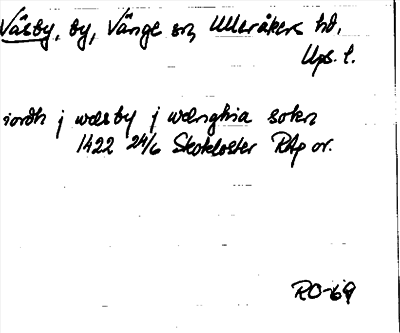 Väsby, by, Vänge sn, Ulleråkers hd,
Ups. l.
iordh j wæsby j wænghia sokn
1422 24/6 Skokloster RAp or.
RO-69